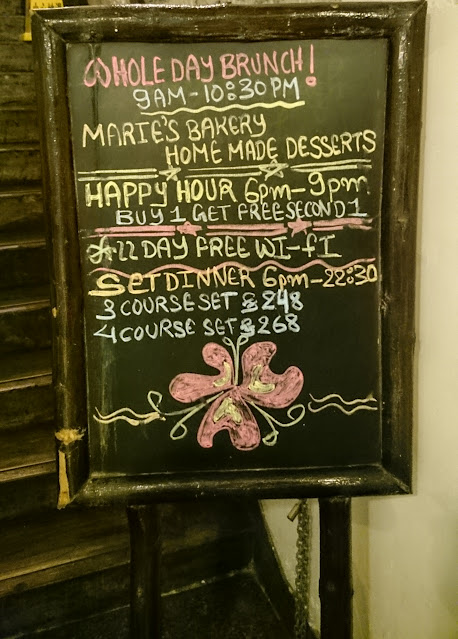 WHOLE DAY BRUNCH!
9AM-10:30PM
MARIE'S BAKERY
HOME MADE DESSERTS
HAPPY HOUR 6pm-9pm
BUY 1 GET FREE SECOND 1
ALL DAY FREE WI-fI
SET DINNER 6pm-22:30
3 COURSE SET $248
4 COURSE SET $268